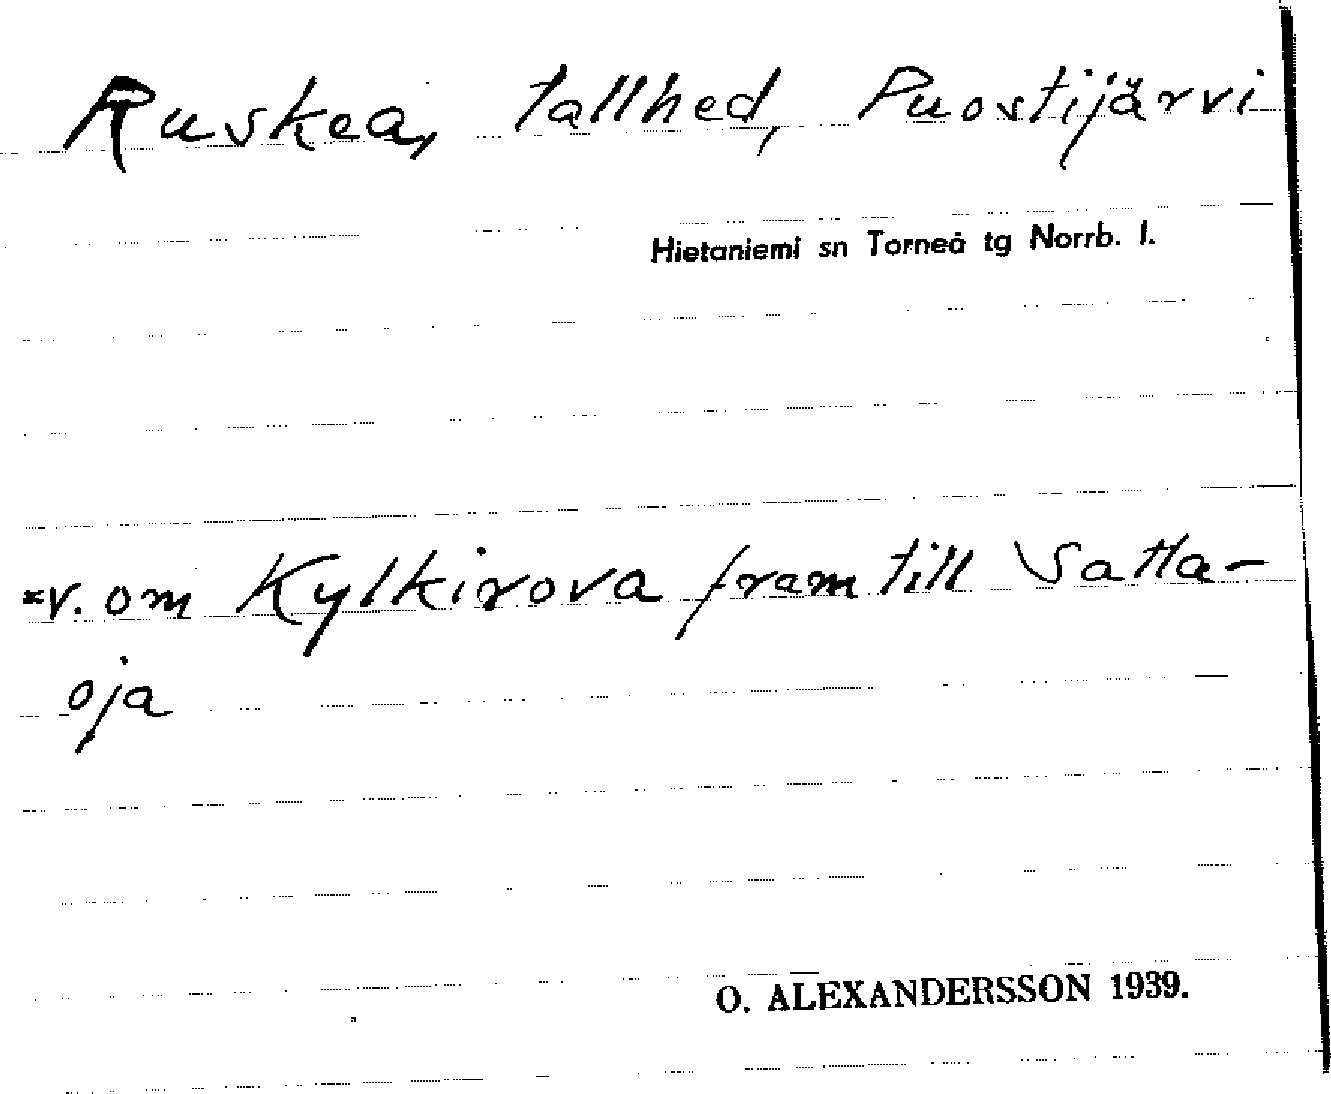 Ruskea, tallhed, Puostijärvi
Hietaniemi sn Torneå tg Norrb. l.
*v. om Kylkirova fram till Satta-
oja
O. ALEXANDERSSON 1939.